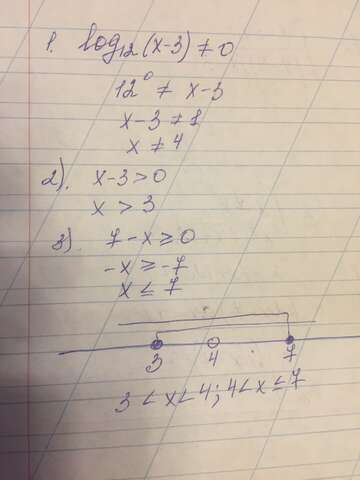 1. log₁₂(x-3) ≠ 0
12⁰ ≠ x-3
x-3 ≠ 1
x ≠ 4
2). x-3>0
x > 3
3). 7-x ≥ 0
-x ≥ -7
x ≤ 7
3 4 7
3 < x < 4; 4 < x ≤ 7